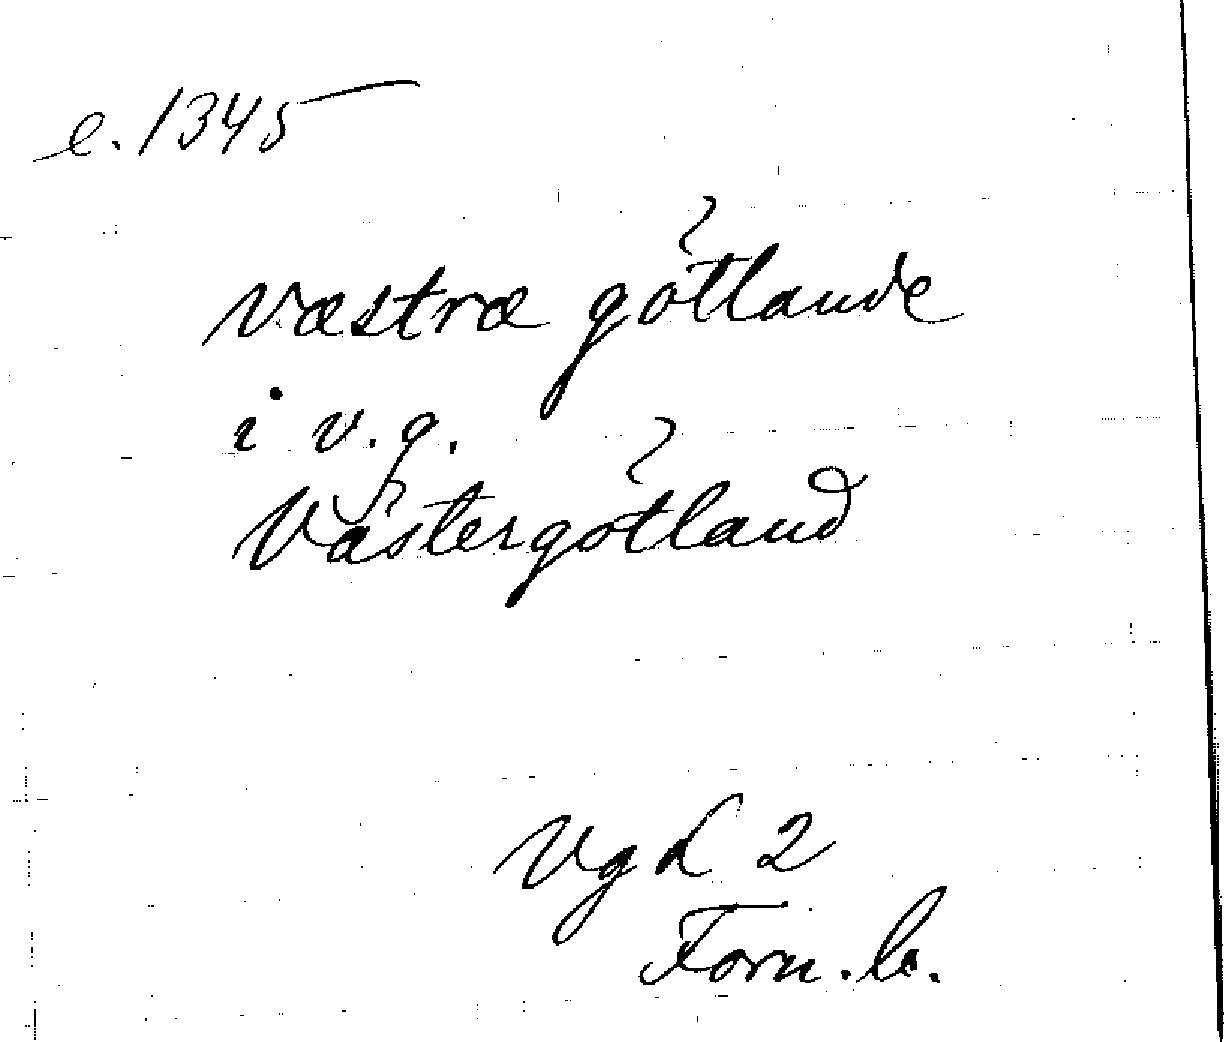 e. 1345
væstræ götlande
i v.g.
Västergötland
VgL 2
Forn. b.